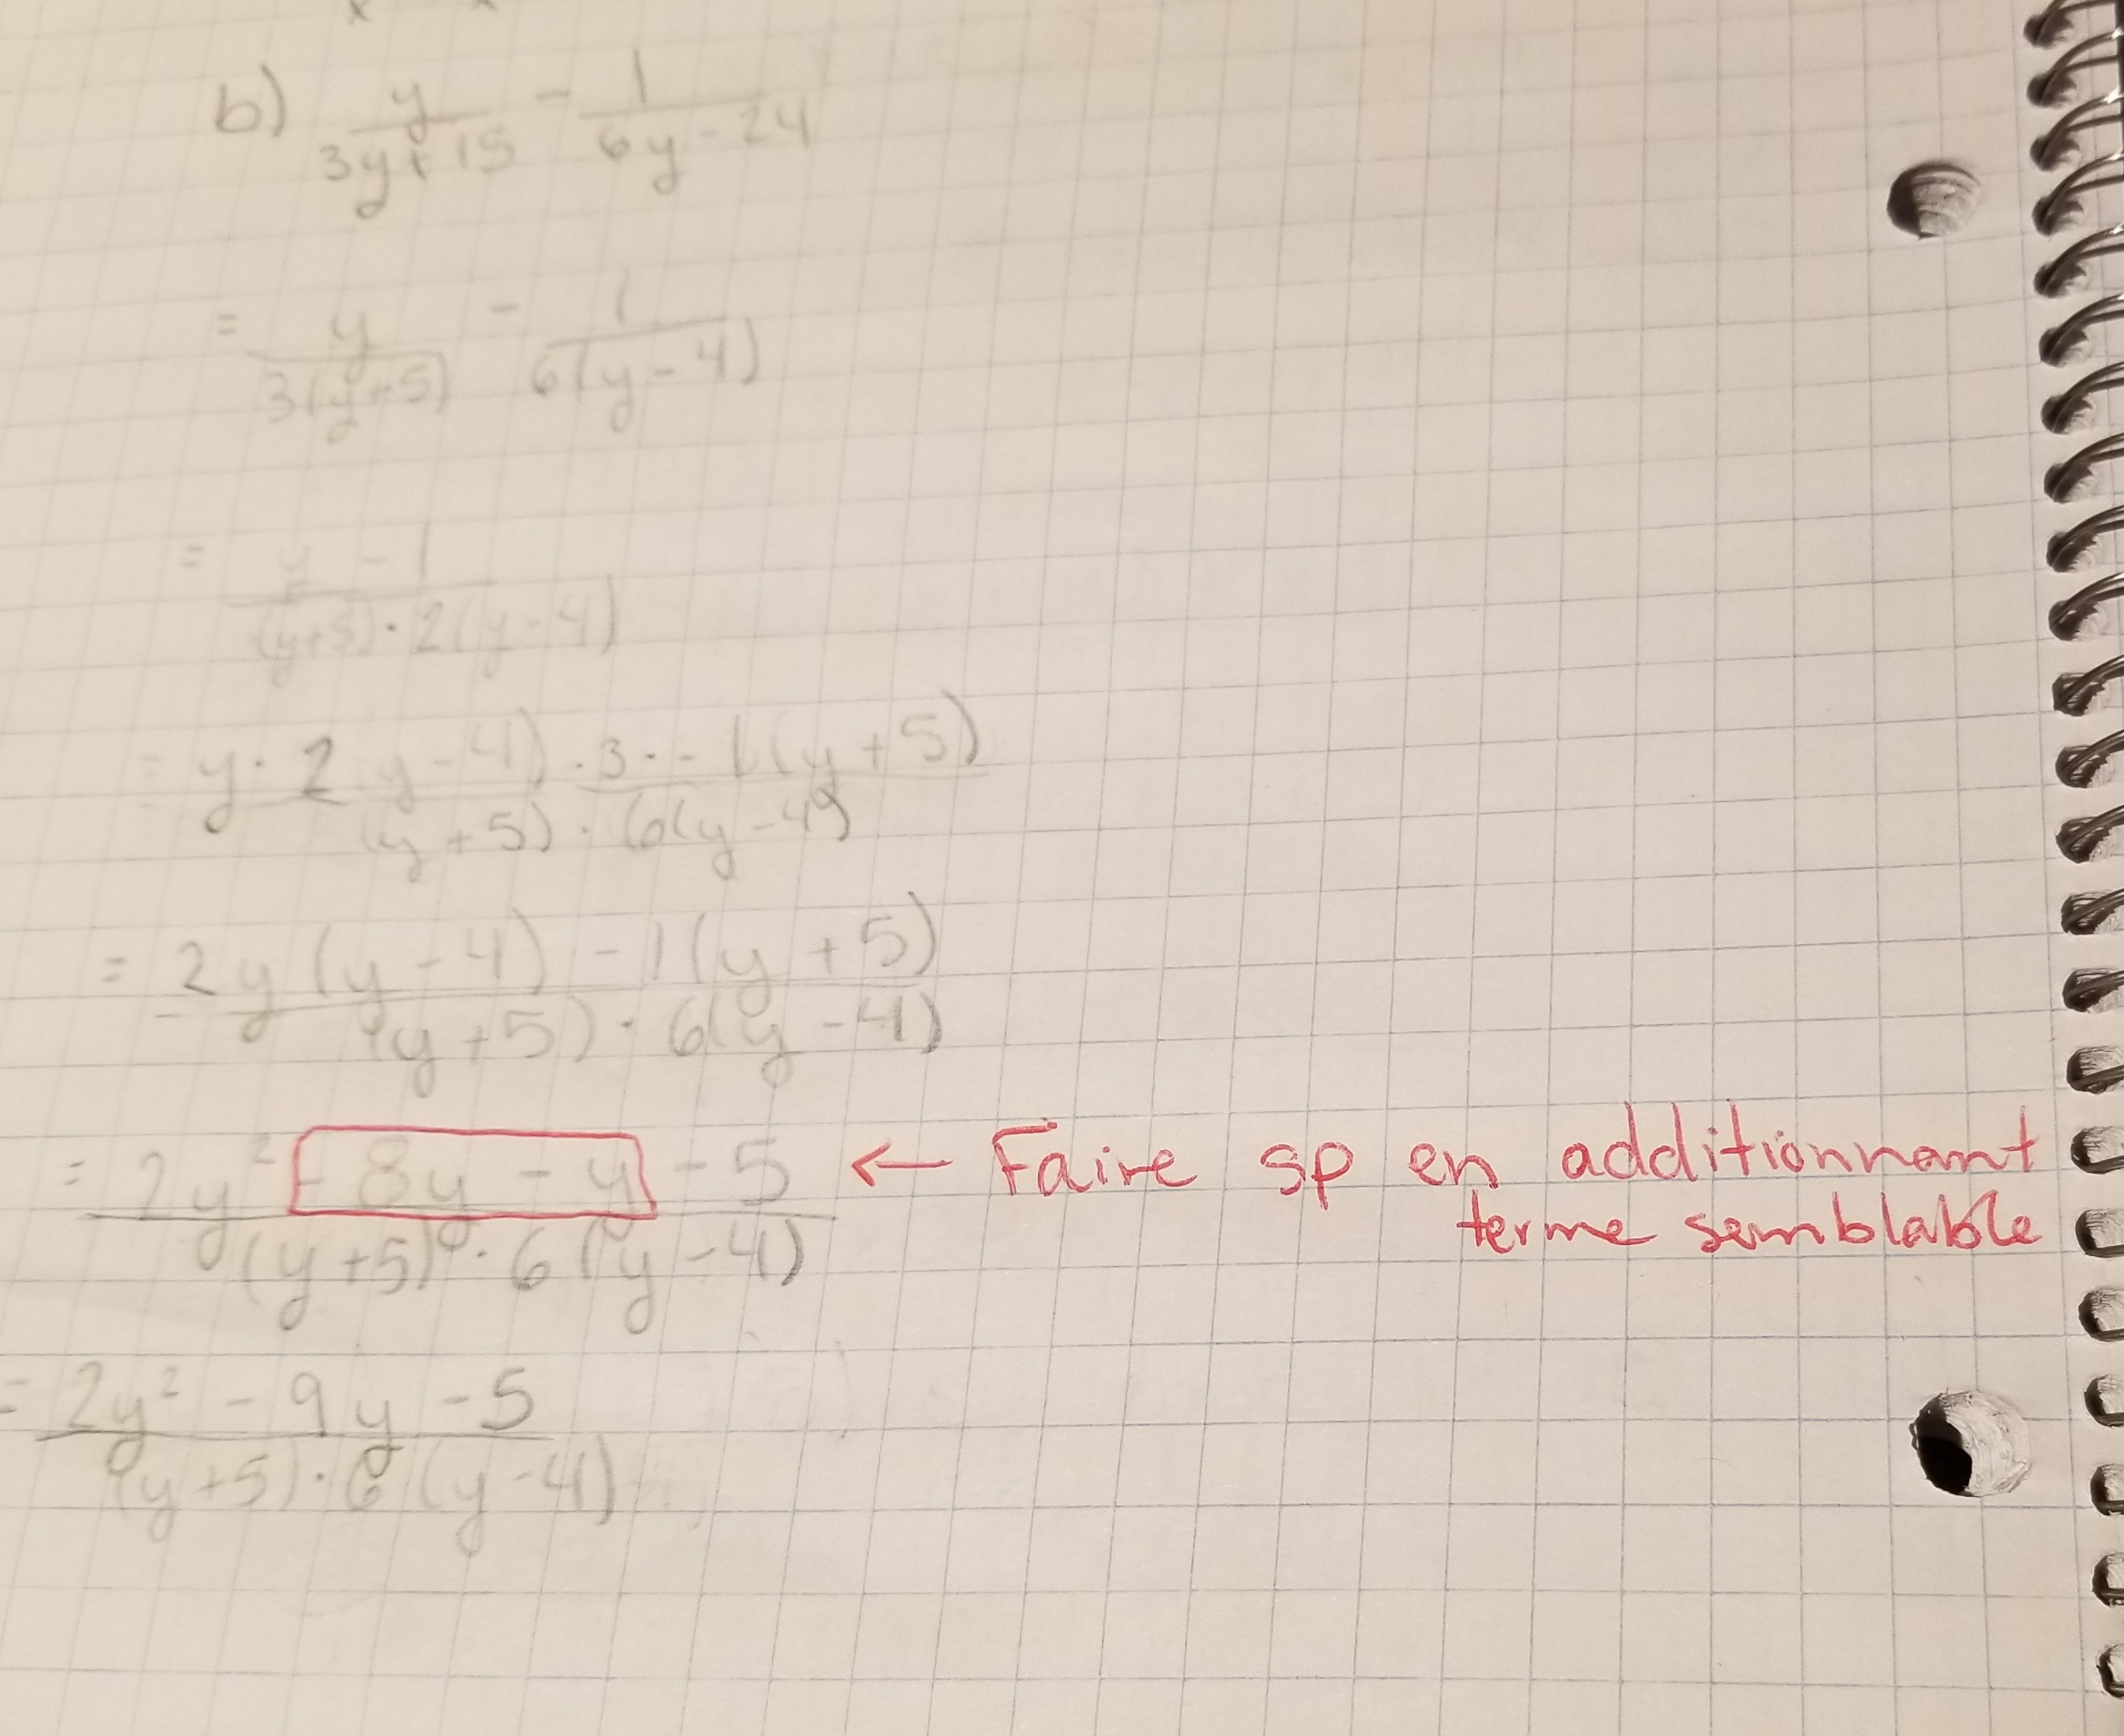 b) y/(3y+15) - 1/(6y-24)
= y/(3(y+5)) - 1/(6(y-4))
= (y - 1)/((y+5)·2(y-4))
= (y·2 y-4)·3·-1(y+5)/((y+5)·6(y-4))
= (2y(y-4) -1(y+5))/((y+5)·6(y-4))
= (2y² - 8y - y - 5)/((y+5)·6(y-4)) ← Faire sp en additionnant
terme semblable
= (2y² - 9y - 5)/((y+5)·6(y-4))